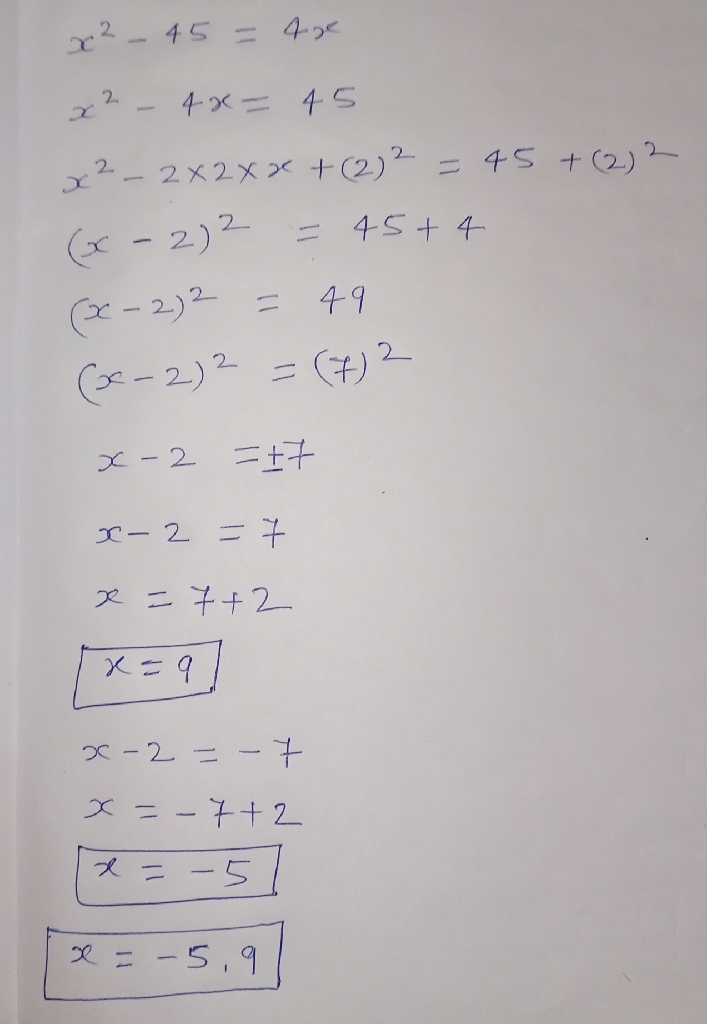 x² - 45 = 4x
x² - 4x = 45
x² - 2×2×x + (2)² = 45 + (2)²
(x - 2)² = 45 + 4
(x - 2)² = 49
(x - 2)² = (7)²
x - 2 = ±7
x - 2 = 7
x = 7 + 2
x = 9
x - 2 = - 7
x = - 7 + 2
x = - 5
x = - 5, 9